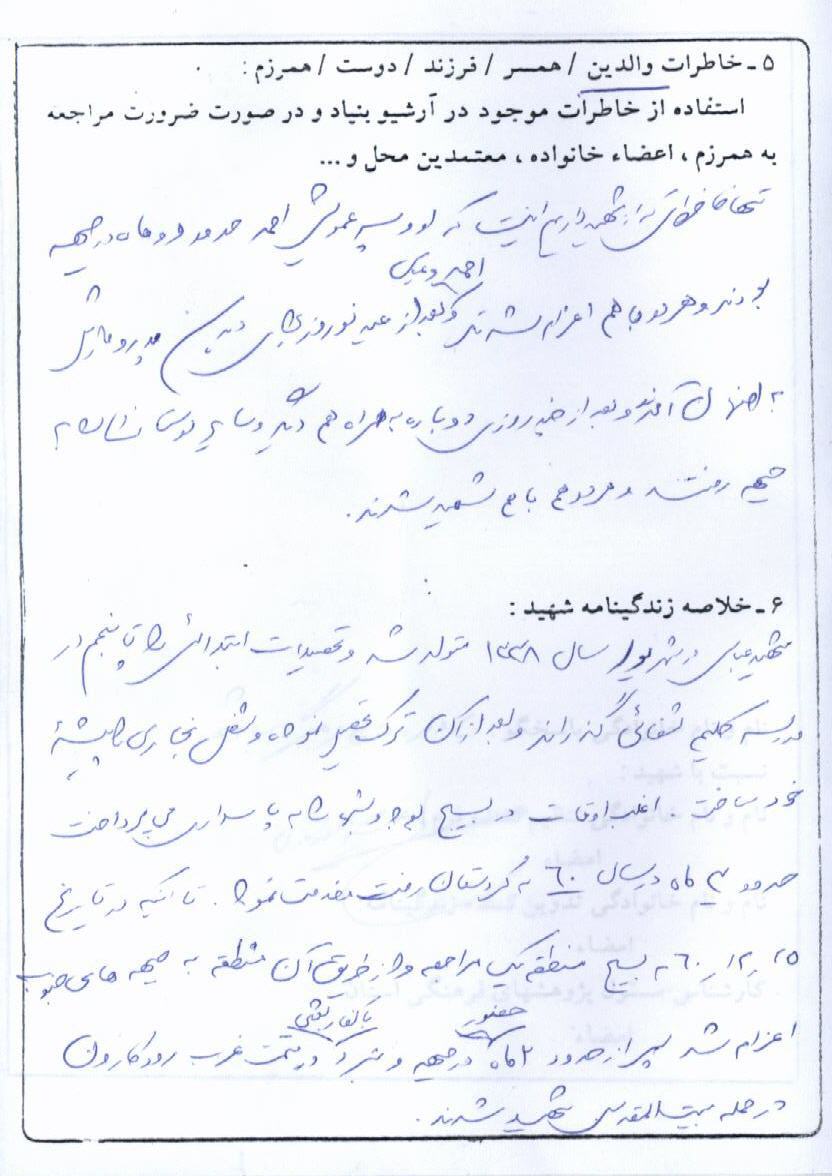 ۵ ـ خاطرات والدین / همسر / فرزند / دوست / همرزم :
استفاده از خاطرات موجود در آرشیو بنیاد و در صورت ضرورت مراجعه
به همرزم ، اعضاء خانواده ، معتمدین محل و ...
تنها خاطراتی که از شهید داریم اینست که او و پسر عمویش احمد حدود دو ماه در جبهه
احمد و عباس
بودند و هر دو با هم اعزام شدند و بعد از عید نوروز برای دیدن پدر و مادرش
به اصفهان آمدند و بعد از چند روزی دوباره به همراه هم دیگر و سایر دوستانشان به
جبهه رفتند و هر دو هم با هم شهید شدند .
۶ ـ خلاصه زندگینامه شهید :
شهید عباس در شهریور سال ۱۳۳۸ متولد شد و تحصیلات ابتدائی را تا پنجم در
مدرسه حکیم شفائی گذراند و بعد از آن ترک تحصیل نموده و شغل نجاری را پیشه
خود ساخت . اغلب اوقات در بسیج بود و شبها به پاسداری می پرداخت
حدود ۳ ماه در سال ۶۰ به کردستان رفت و خدمت نمود . تا آنکه در تاریخ
۲۵ ر ۱۲ ر ۶۰ به بسیج منطقه یک مراجعه و از طریق آن منطقه به جبهه های جنوب
حضور با کفار بعثی
اعزام شد پس از حدود ۲ ماه در جبهه و نبرد در قسمت غرب رود کارون
در حمله بیت المقدس شهید شدند .